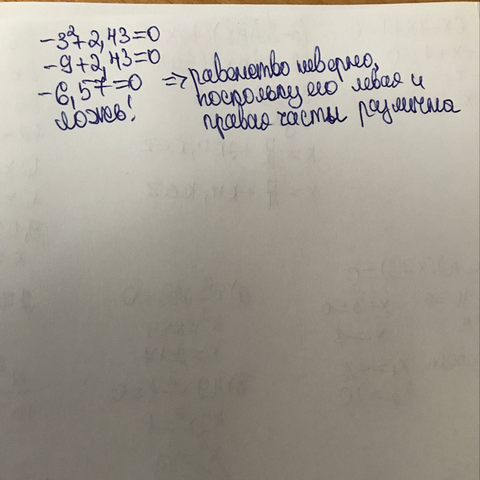 -3²+2,43=0
-9+2,43=0
-6,57=0
ложь!
=> равенство неверно,
поскольку его левая и
правая части различна